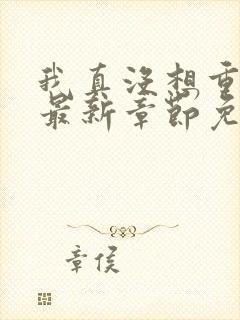 我真没想重
最新章节免
章侯